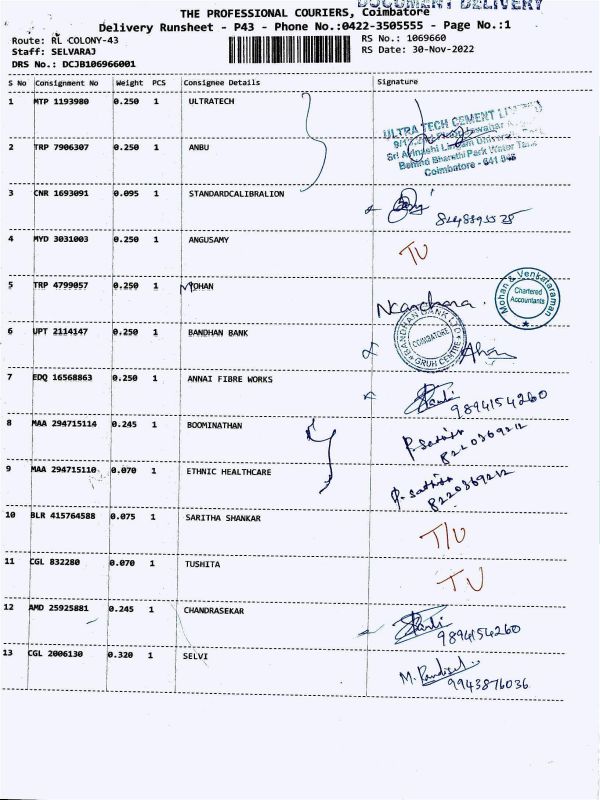 DOCUMENT DELIVERY
THE PROFESSIONAL COURIERS, Coimbatore
Delivery Runsheet - P43 - Phone No.:0422-3505555 - Page No.:1
Route: RL COLONY-43
RS No.: 1069660
Staff: SELVARAJ
RS Date: 30-Nov-2022
DRS No.: DCJB106966001
S No Consignment No Weight PCS Consignee Details Signature
1 MTP 1193980 0.250 1 ULTRATECH
ULTRA TECH CEMENT LIMITED
Behind Bharathi Park Water Tank
Coimbatore - 641
2 TRP 7906307 0.250 1 ANBU
3 CNR 1693091 0.095 1 STANDARDCALIBRALION
4 MYD 3031003 0.250 1 ANGUSAMY TU
5 TRP 4799057 0.250 1 MOHAN
Mohan & Venkataraman
Chartered
Accountants
6 UPT 2114147 0.250 1 BANDHAN BANK
BANDHAN BANK LTD
COIMBATORE
GRUH CENTRE
7 EDQ 16568863 0.250 1 ANNAI FIBRE WORKS 9894154260
8 MAA 294715114 0.245 1 BOOMINATHAN
9 MAA 294715110 0.070 1 ETHNIC HEALTHCARE
10 BLR 415764588 0.075 1 SARITHA SHANKAR T/U
11 CGL 832280 0.070 1 TUSHITA TU
12 AMD 25925881 0.245 1 CHANDRASEKAR 9894154260
13 CGL 2006130 0.320 1 SELVI 9943876036